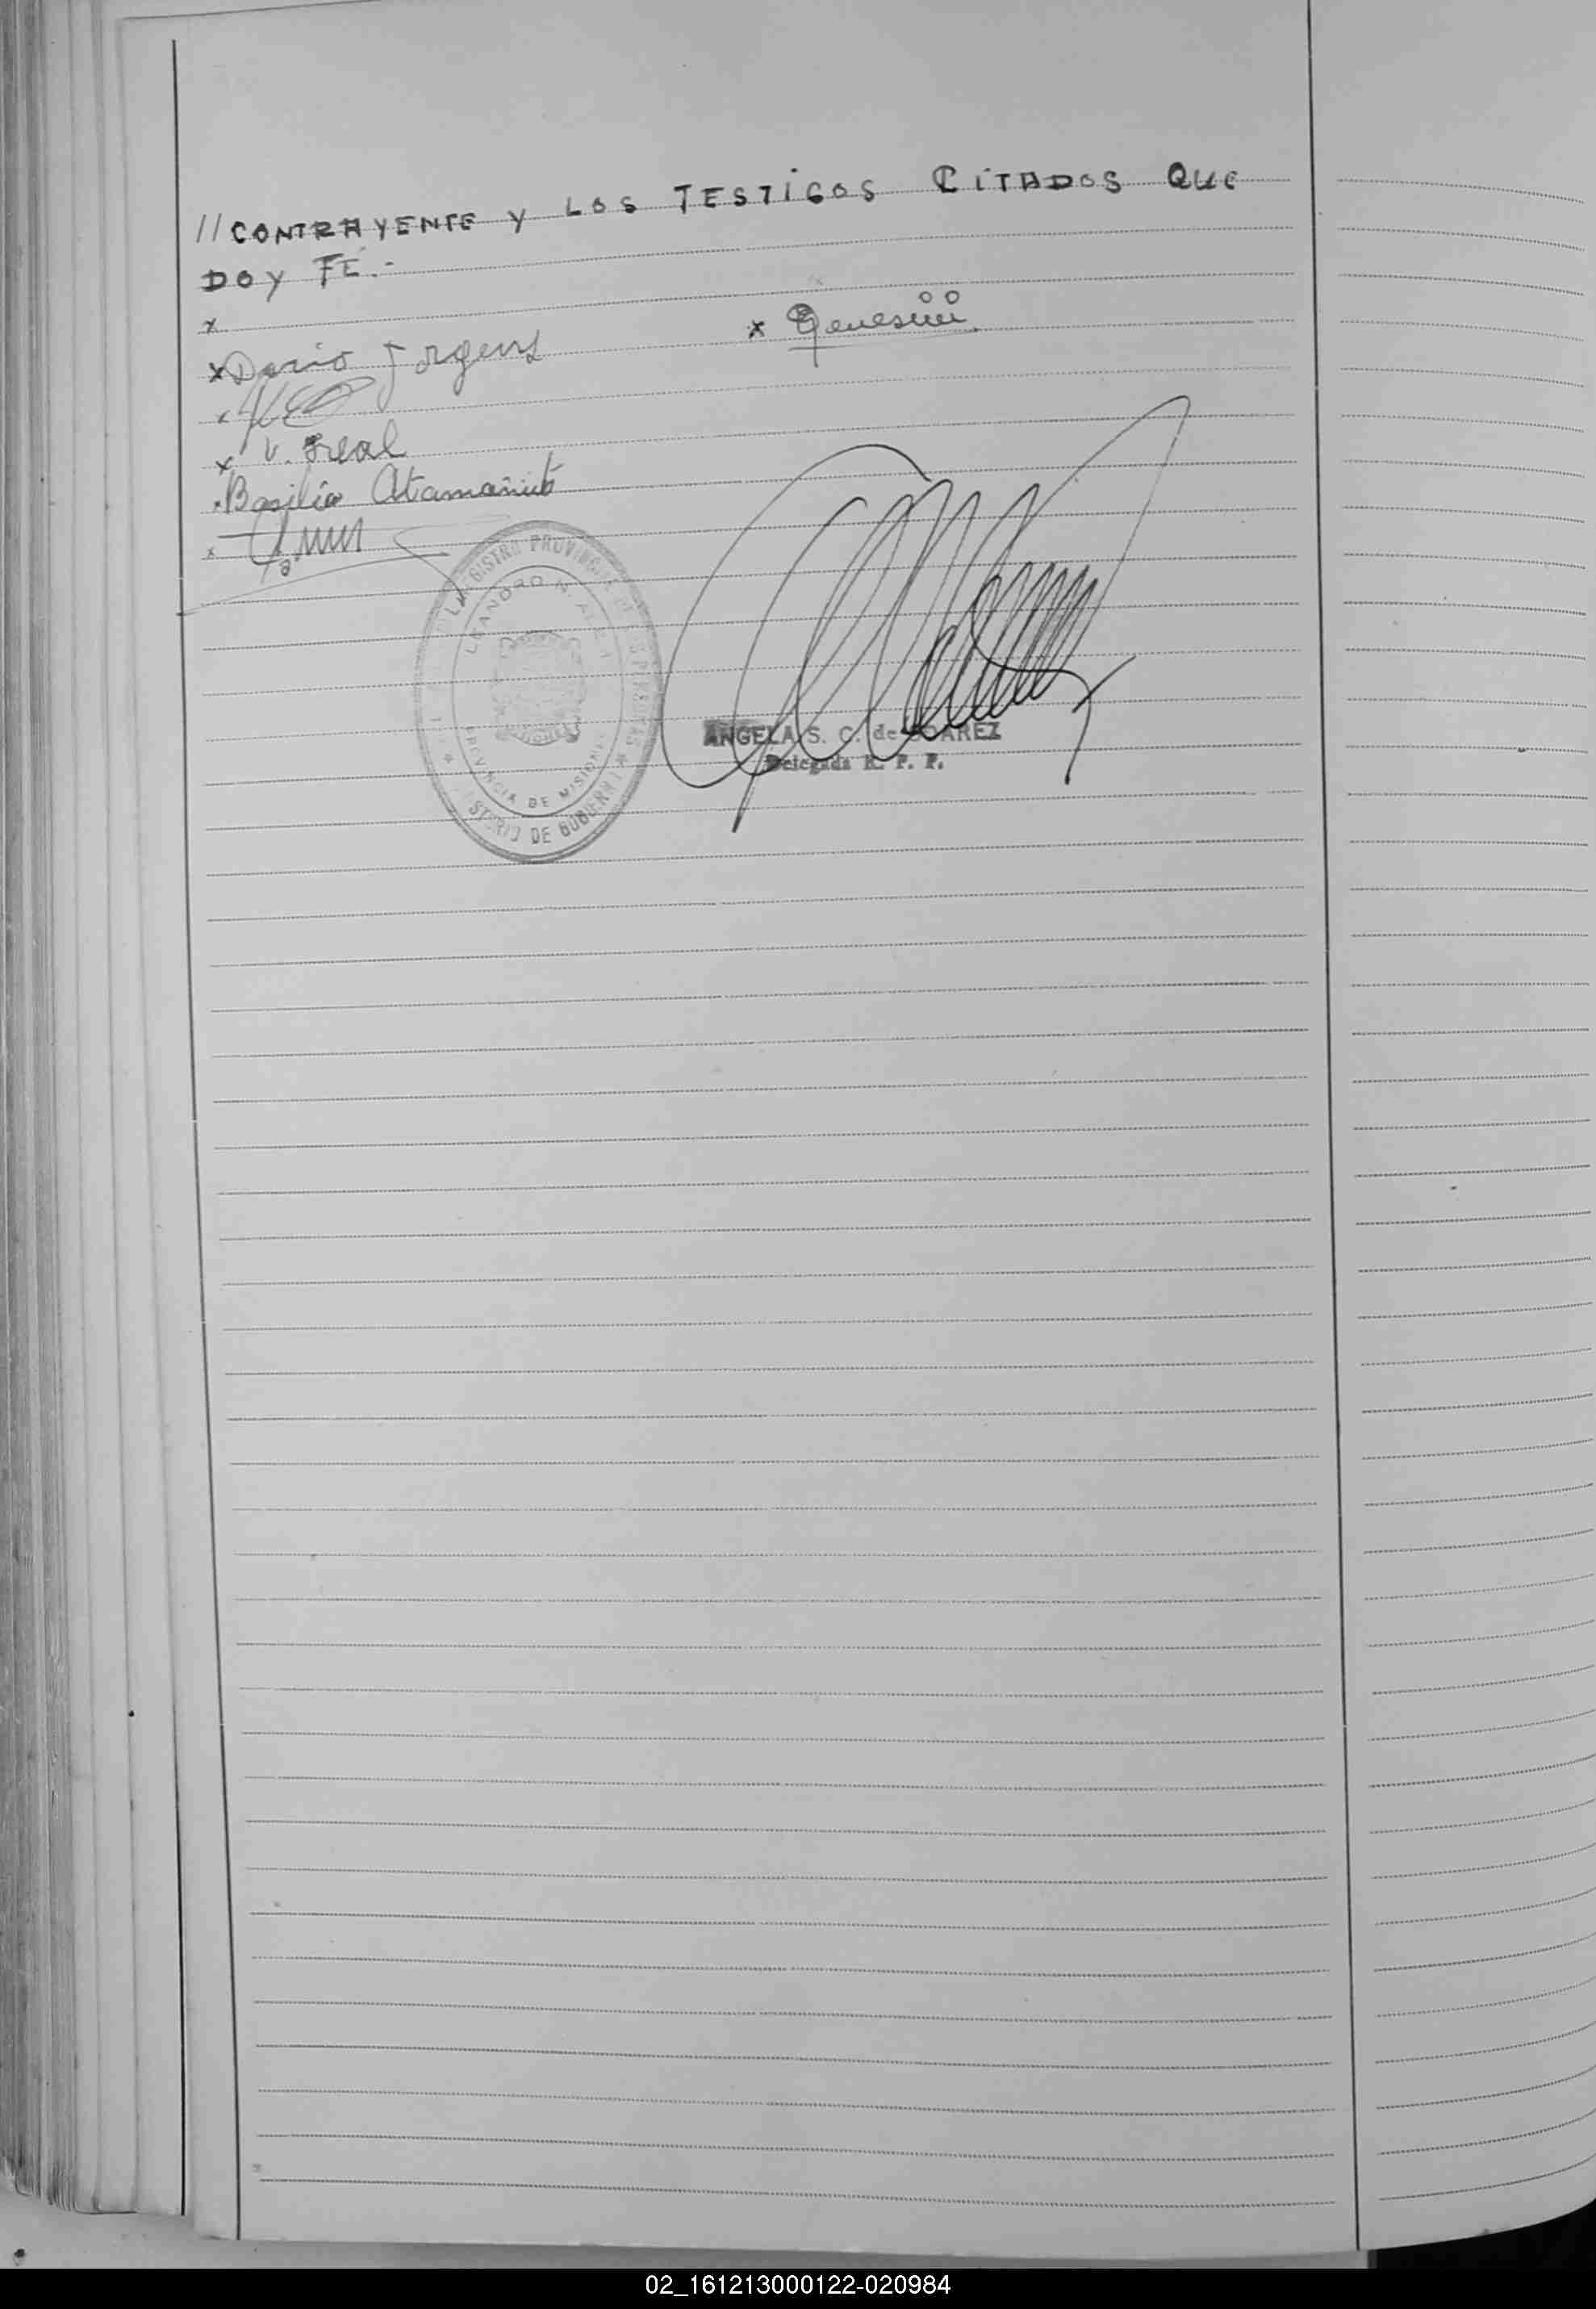 //CONTRAYENTE Y LOS TESTIGOS CITADOS QUE
DOY FE.-
x
x Dario Jorgens
x
x
x V. Leal
Basilio Atamañuk
x
REGISTRO PROVINCIAL DE LAS PERSONAS
LEANDRO N. ALEM
PROVINCIA DE MISIONES
MINISTERIO DE GOBIERNO
ANGELA S. C. de SOAREZ
Delegada R. P. P.
02_161213000122-020984